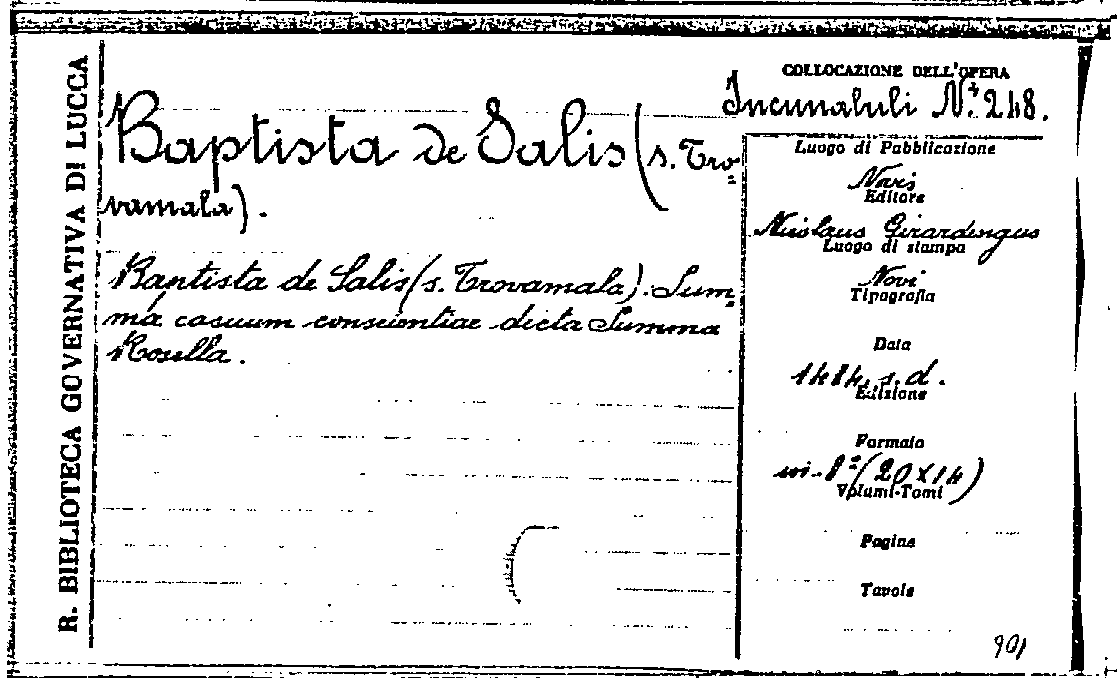 R. BIBLIOTECA GOVERNATIVA DI LUCCA
COLLOCAZIONE DELL'OPERA
Incunabuli N.° 248.
Baptista de Salis (s. Tro=
vamala).
Baptista de Salis (s. Trovamala). Sum=
ma casuum conscientiae dicta Summa
Rosella.
Luogo di Pubblicazione
Novis
Editore
Nicolaus Girardengus
Luogo di stampa
Novi
Tipografia
Data
1484, s. d.
Edizione
Formato
in-8° (20x14)
Volumi-Tomi
Pagine
Tavole
901